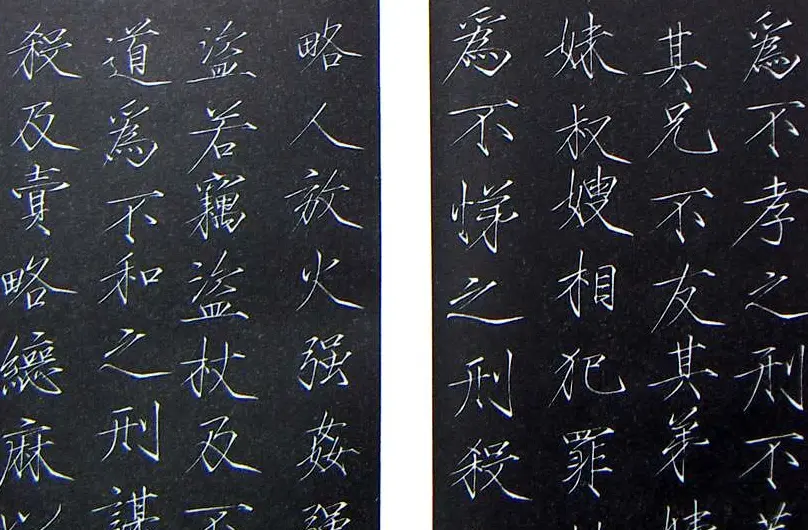 為不孝之刑不
其兄不友其弟
妹叔嫂相犯罪
為不悌之刑殺
略人放火强姦强
盜若竊盜杖及不
道為不和之刑謀
殺及賣略緦麻以